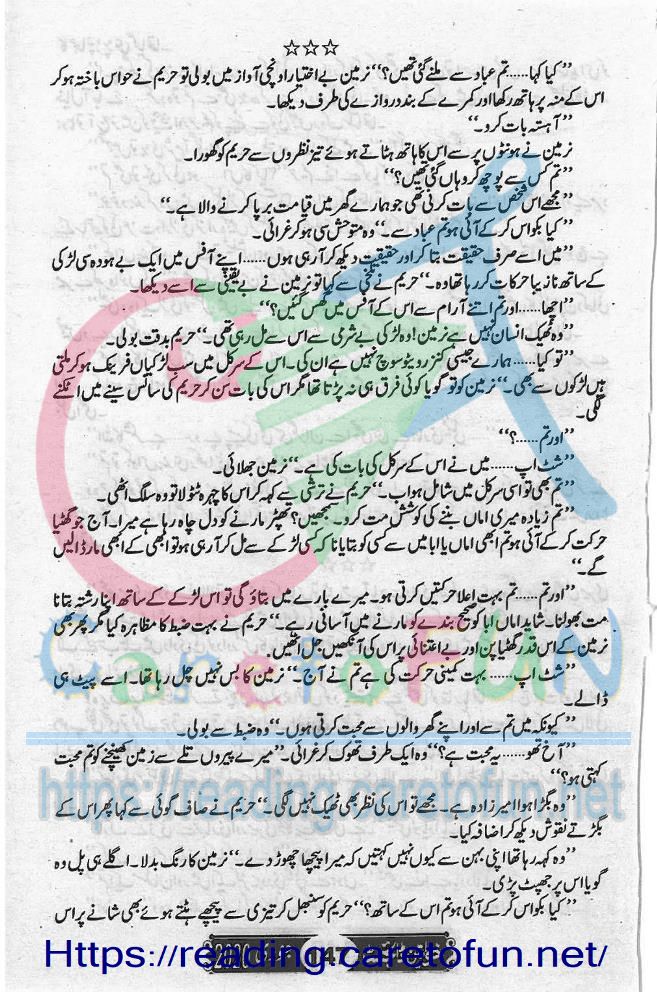 ☆☆☆
’’ کیا کہا......تم عباد سے ملنے گئی تھیں؟‘‘ نرمین بے اختیار اونچی آواز میں بولی تو حریم نے حواس باختہ ہو کر
اس کے منہ پر ہاتھ رکھا اور کمرے کے بند دروازے کی طرف دیکھا۔
’’آہستہ بات کرو۔‘‘
نرمین نے ہونٹوں پر سے اس کا ہاتھ ہٹاتے ہوئے تیز نظروں سے حریم کو گھورا۔
’’تم کس سے پوچھ کر وہاں گئی تھیں؟‘‘
’’مجھے اس شخص سے بات کرنی تھی جو ہمارے گھر میں قیامت برپا کرنے والا ہے۔‘‘
’’کیا بکواس کر کے آئی ہو تم عباد سے۔‘‘ وہ متوحش سی ہو کر غرائی۔
’’میں اسے صرف حقیقت بتا کر اور حقیقت دیکھ کر آ رہی ہوں......اپنے آفس میں ایک بے ہودہ سی لڑکی
کے ساتھ نازیبا حرکات کر رہا تھا وہ۔‘‘ حریم نے تلخی سے کہا تو نرمین نے بے یقینی سے اسے دیکھا۔
’’اچھا......اور تم اتنے آرام سے اس کے آفس میں گھس گئیں؟‘‘
’’وہ ٹھیک انسان نہیں ہے نرمین! وہ لڑکی بے شرمی سے اس سے مل رہی تھی۔‘‘ حریم بدقت بولی۔
’’تو کیا......ہمارے جیسی کنزرویٹو سوچ نہیں ہے ان کی۔ اس کے سرکل میں سب لڑکیاں فرینک ہو کر ملتی
ہیں لڑکوں سے بھی۔‘‘ نرمین کو تو گویا کوئی فرق ہی نہ پڑتا تھا مگر اس کی بات سن کر حریم کی سانس سینے میں اٹکنے
لگی۔
’’اور تم......؟‘‘
’’شٹ اپ......میں نے اس کے سرکل کی بات کی ہے۔‘‘ نرمین جھلائی۔
’’تم بھی تو اسی سرکل میں شامل ہو اب۔‘‘ حریم نے ترشی سے کہہ کر اس کا چہرہ ٹٹولا تو وہ سلگ اٹھی۔
’’تم زیادہ میری اماں بننے کی کوشش مت کرو۔ سمجھیں؟ تھپڑ مارنے کو دل چاہ رہا ہے میرا۔ آج جو گھٹیا
حرکت کر کے آئی ہو تم ابھی اماں یا ابا میں سے کسی کو بتایا نا کہ کسی لڑکے سے مل کر آ رہی ہو تو ابھی کے ابھی مار ڈالیں
گے۔‘‘
’’اور تم......تم بہت اعلا حرکتیں کرتی ہو۔ میرے بارے میں بتاؤ گی تو اس لڑکے کے ساتھ اپنا رشتہ بتانا
مت بھولنا۔ شاید اماں ابا کو صحیح بندے کو مارنے میں آسانی رہے۔‘‘ حریم نے بہت ضبط کا مظاہرہ کیا مگر پھر بھی
نرمین کے اس قدر گھٹیا پن اور بے اعتنائی پر اس کی آنکھیں جل اٹھیں۔
’’شٹ اپ......بہت کمینی حرکت کی ہے تم نے آج۔‘‘ نرمین کا بس نہیں چل رہا تھا۔ اسے پیٹ ہی
ڈالے۔
’’کیونکہ میں تم سے اور اپنے گھر والوں سے محبت کرتی ہوں۔‘‘ وہ ضبط سے بولی۔
’’آخ تھو......یہ محبت ہے؟‘‘ وہ ایک طرف تھوک کر غرائی۔ ’’میرے پیروں تلے سے زمین کھینچنے کو تم محبت
کہتی ہو؟‘‘
’’وہ بگڑا ہوا امیر زادہ ہے۔ مجھے تو اس کی نظر بھی ٹھیک نہیں لگی۔‘‘ حریم نے صاف گوئی سے کہا پھر اس کے
بگڑتے نقوش دیکھ کر اضافہ کیا۔
’’وہ کہہ رہا تھا اپنی بہن سے کیوں نہیں کہتیں کہ میرا پیچھا چھوڑ دے۔‘‘ نرمین کا رنگ بدلا۔ اگلے ہی پل وہ
گویا اس پر جھپٹ پڑی۔
’’کیا بکواس کر کے آئی ہو تم اس کے ساتھ؟‘‘ حریم کو سنبھل کر تیزی سے پیچھے ہٹتے ہوئے بھی شانے پر اس
147 2020
CaretoFUN
https://reading.caretofun.net
Https://reading-caretofun.net/